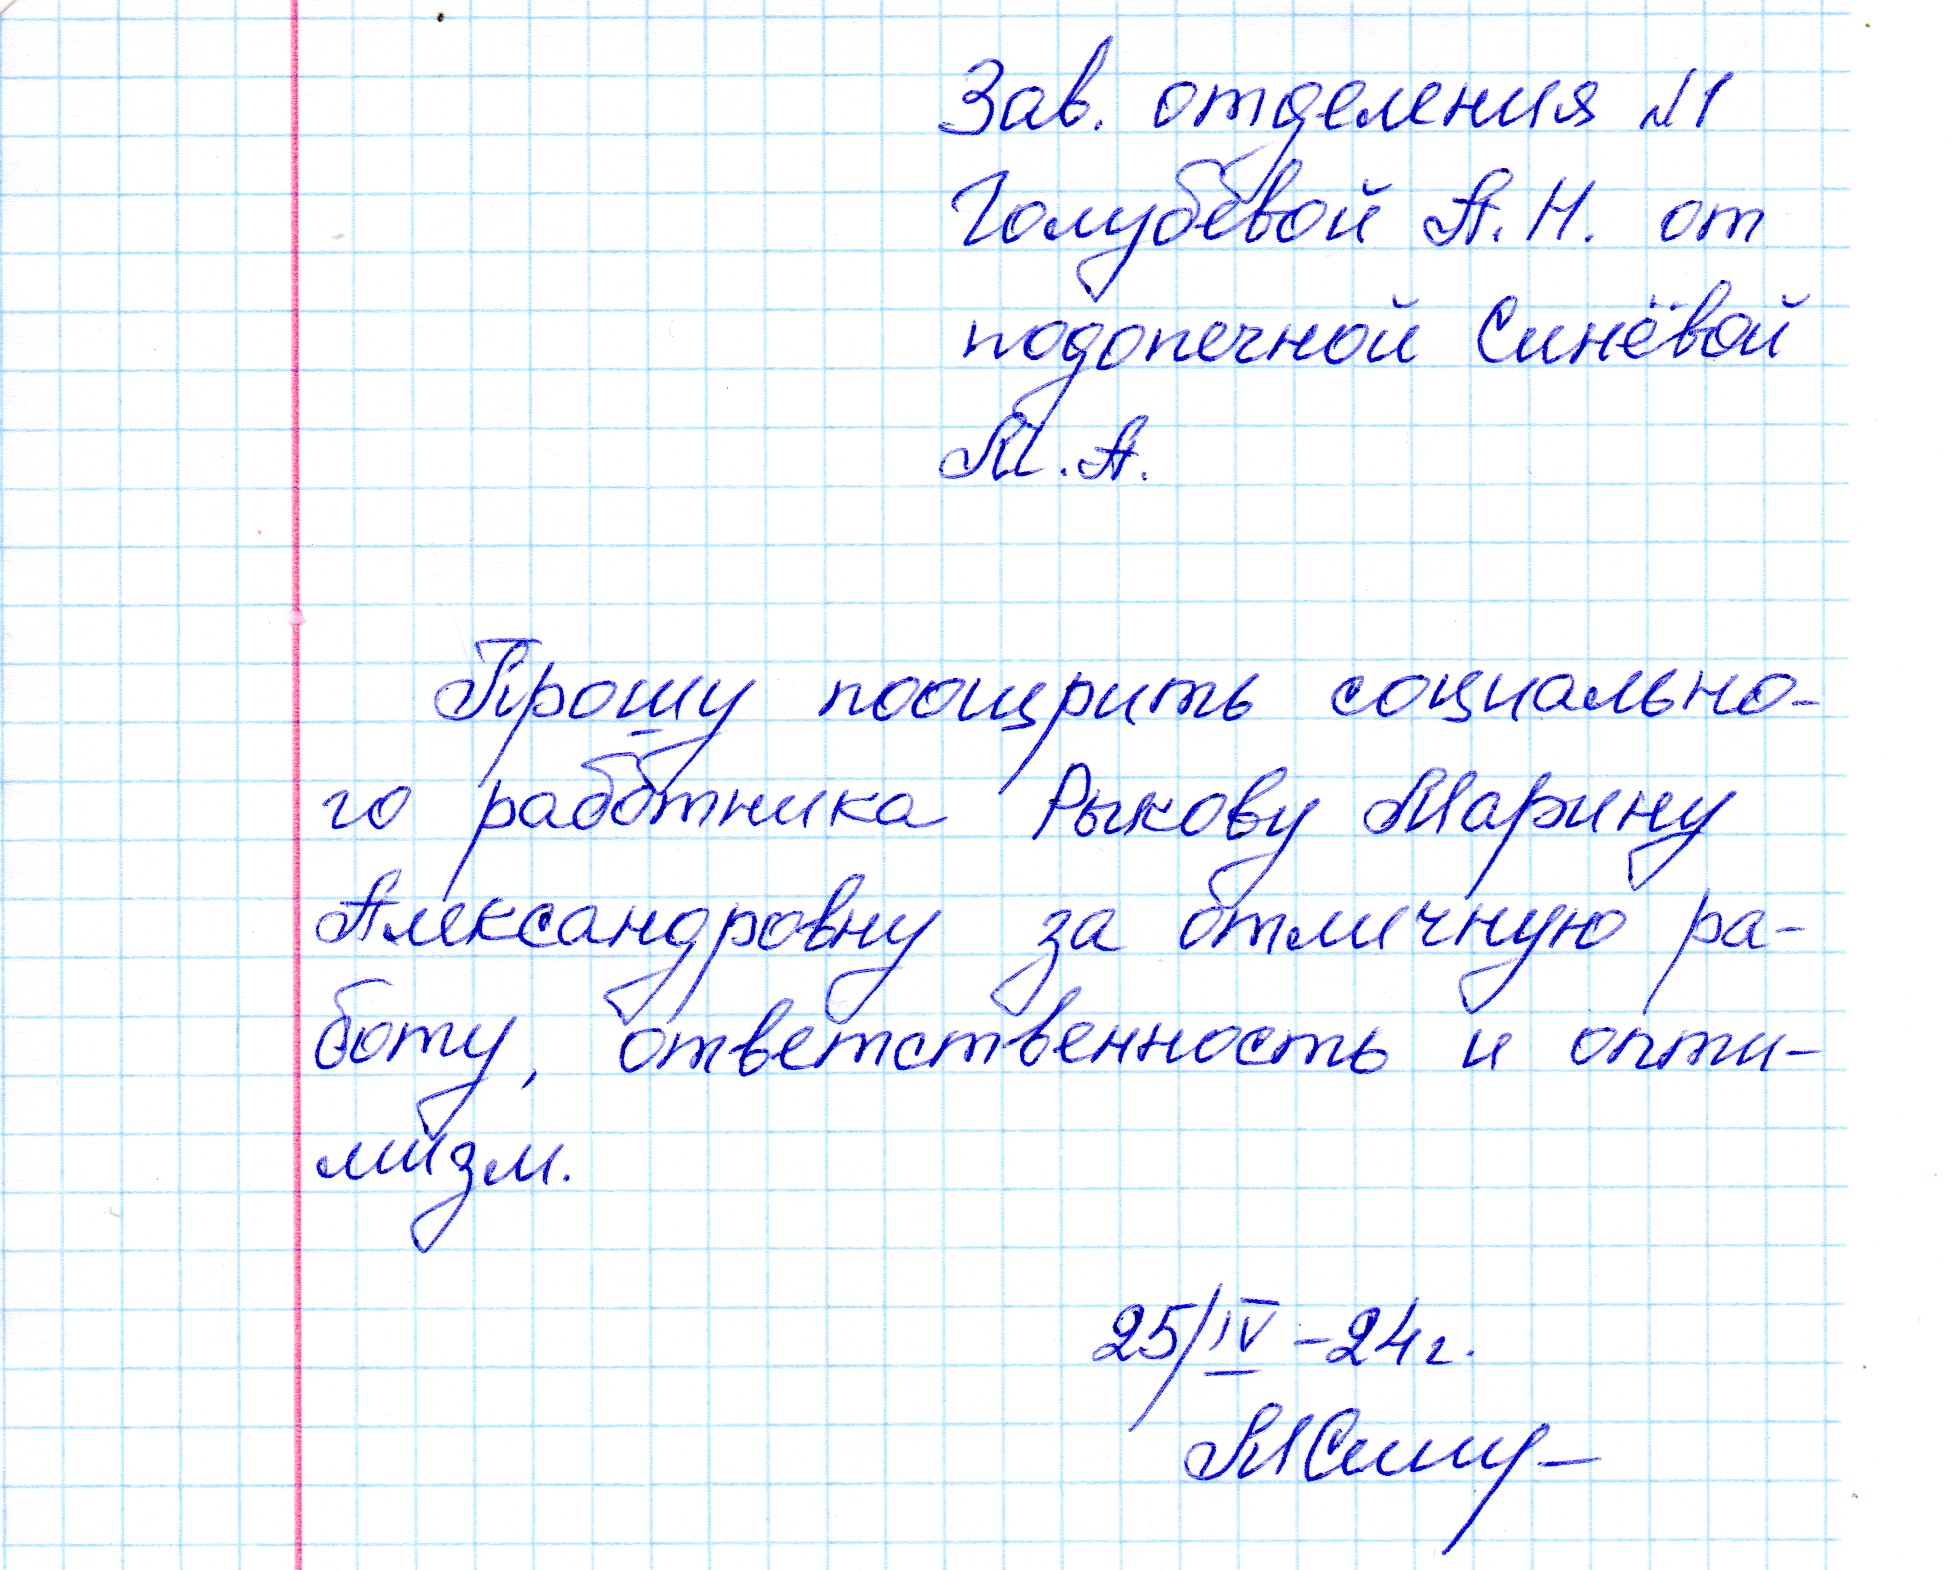 Зав. отделения №1
Голубевой А.Н. от
подопечной Синёвой
М.А.
Прошу поощрить социально-
го работника Рыкову Марину
Александровну за отличную ра-
боту, ответственность и опти-
мизм.
25/IV-24г.